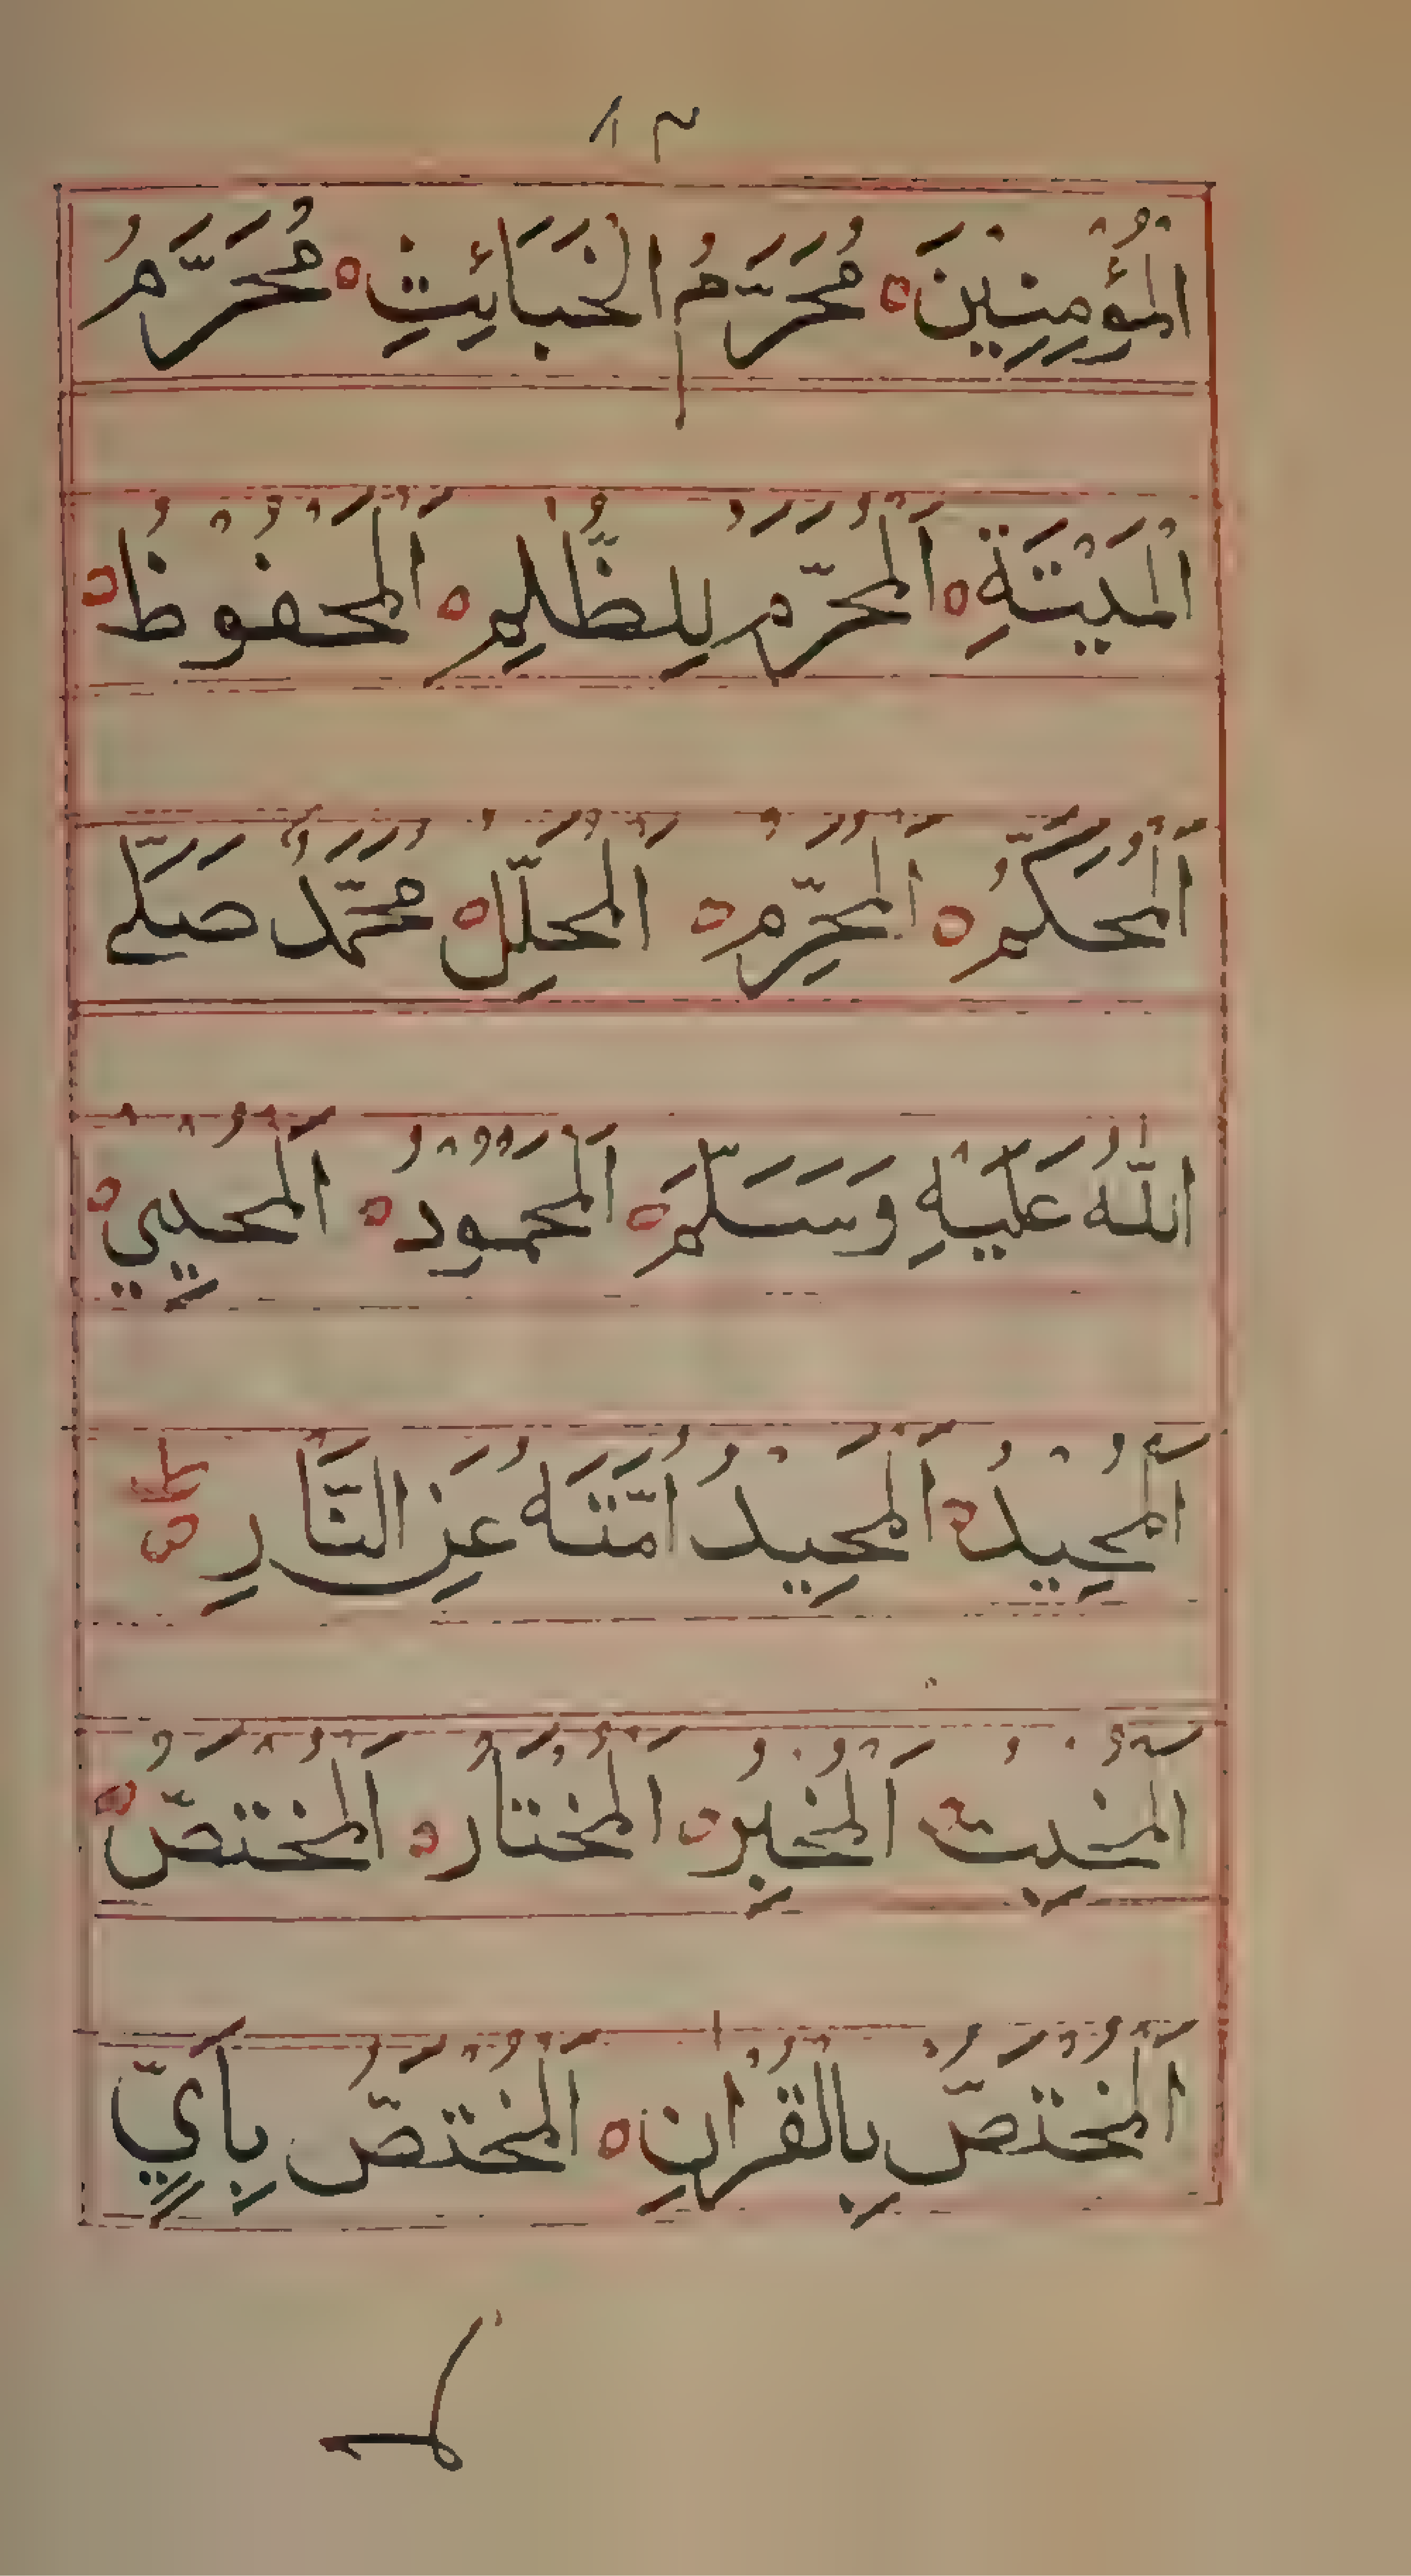 ١٣
الْمُؤْمِنِينَ ه مُحَرِّمُ الْخَبَائِثِ ه مُحَرَّمُ
الْمَيْتَةِ ه اَلْمُحَرَّمُ لِلظُّلْمِ ه اَلْمَحْفُوظُ ه
اَلْمُحَكَّمُ ه اَلْمُحَرِّمُ ه اَلْمُحَلِّلُ ه مُحَمَّدٌ صَلَّى
اللّٰهُ عَلَيْهِ وَسَلَّمَ ه اَلْمَحْمُودُ ه اَلْمُحْيِيْ ه
اَلْمُحِيْدُ ه اَلْمُحِيْدُ اُمَّتَهُ عَنِ النَّارِ ه ط
اَلْمُخْبِتُ ه اَلْمُخْبِرُ ه اَلْمُخْتَارُ ه اَلْمُخْتَصُّ ه
اَلْمُخْتَصُّ بِالْقُرْاٰنِ ه اَلْمُخْتَصُّ بِاٰيٍ